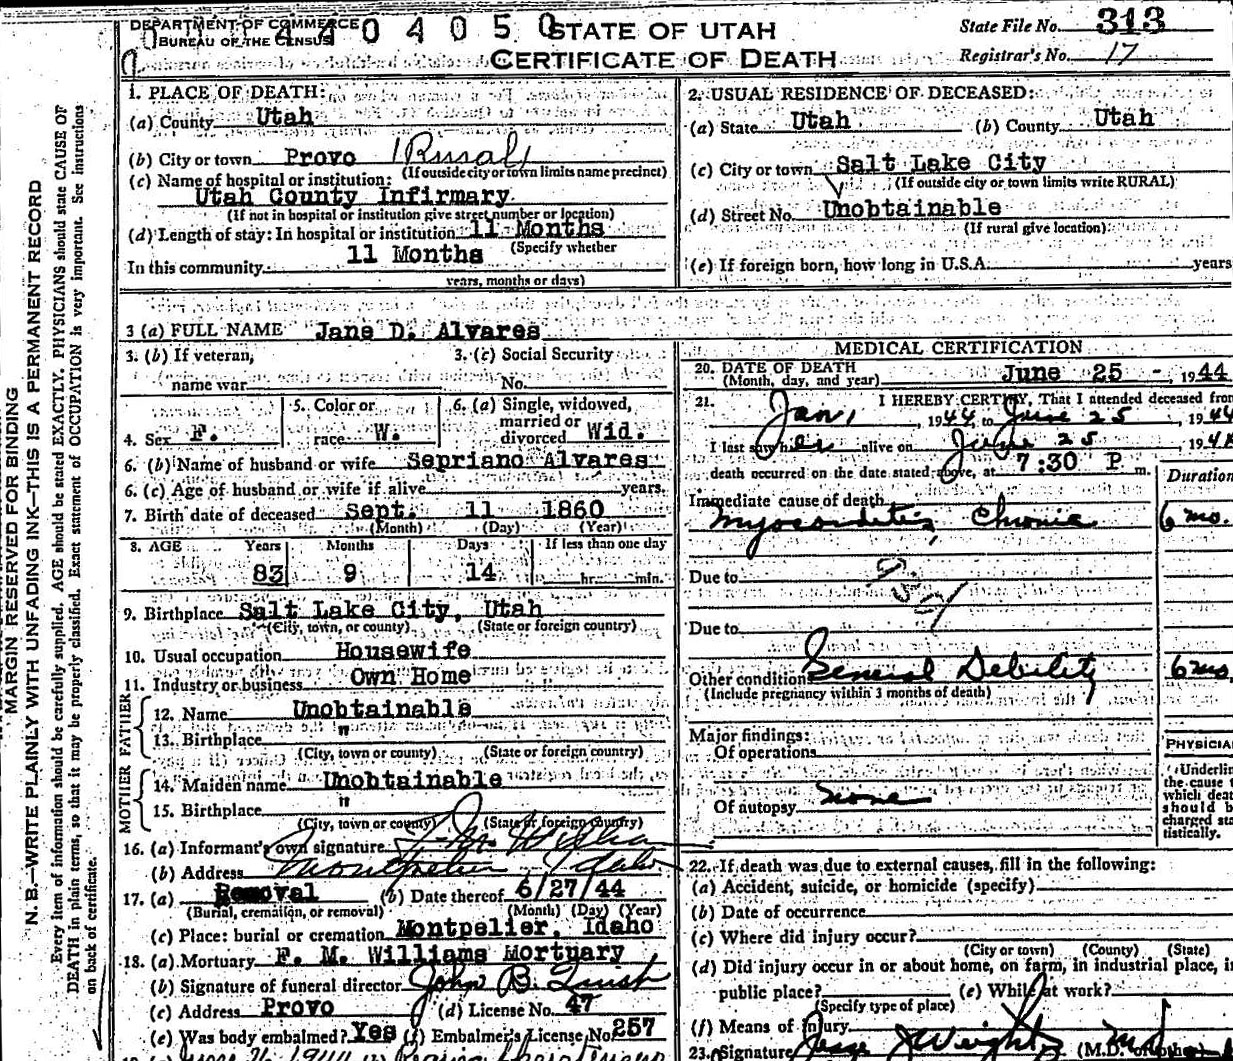 DEPARTMENT OF COMMERCE
BUREAU OF THE CENSUS
4 4 0 4 0 5 0
STATE OF UTAH
CERTIFICATE OF DEATH
State File No. 313
Registrar's No. 17
MARGIN RESERVED FOR BINDING
N. B.—WRITE PLAINLY WITH UNFADING INK—THIS IS A PERMANENT RECORD
Every item of information should be carefully supplied. AGE should be stated EXACTLY. PHYSICIANS should state CAUSE OF
DEATH in plain terms, so that it may be properly classified. Exact statement of OCCUPATION is very important. See instructions
on back of certificate.
1. PLACE OF DEATH:
(a) County Utah
(b) City or town Provo (Rural)
(If outside city or town limits name precinct)
(c) Name of hospital or institution:
Utah County Infirmary
(If not in hospital or institution give street number or location)
(d) Length of stay: In hospital or institution 11 Months
(Specify whether
In this community 11 Months
years, months or days)
2. USUAL RESIDENCE OF DECEASED:
(a) State Utah (b) County Utah
(c) City or town Salt Lake City
(If outside city or town limits write RURAL)
(d) Street No. Unobtainable
(If rural give location)
(e) If foreign born, how long in U.S.A. years
3 (a) FULL NAME Jane D. Alvares
3. (b) If veteran,
name war
3. (c) Social Security
No.
4. Sex F.
5. Color or
race W.
6. (a) Single, widowed,
married or
divorced Wid.
6. (b) Name of husband or wife Sepriano Alvares
6. (c) Age of husband or wife if alive years.
7. Birth date of deceased Sept. 11 1860
(Month) (Day) (Year)
8. AGE Years Months Days If less than one day
83 9 14 hr. min.
9. Birthplace Salt Lake City, Utah
(City, town, or county) (State or foreign country)
10. Usual occupation Housewife
11. Industry or business Own Home
FATHER
12. Name Unobtainable
13. Birthplace "
(City, town or county) (State or foreign country)
MOTHER
14. Maiden name Unobtainable
15. Birthplace "
(City, town or county) (State or foreign country)
16. (a) Informant's own signature
(b) Address Montpelier Idaho
17. (a) Removal (b) Date thereof 6/27/44
(Burial, cremation, or removal) (Month) (Day) (Year)
(c) Place: burial or cremation Montpelier, Idaho
18. (a) Mortuary F. M. Williams Mortuary
(b) Signature of funeral director John B.
(c) Address Provo (d) License No. 47
(e) Was body embalmed? Yes (f) Embalmer's License No. 257
MEDICAL CERTIFICATION
20. DATE OF DEATH
(Month, day, and year) June 25 -, 1944
21. I HEREBY CERTIFY, That I attended deceased from
Jan 1, 1944 to June 25, 1944
I last saw her alive on June 25 1944
death occurred on the date stated above, at 7:30 P m.
Duration
Immediate cause of death
Myocarditis, Chronic 6 mo.
Due to
Due to
Other conditions General Debility 6 mo.
(Include pregnancy within 3 months of death)
Major findings:
Of operations
Of autopsy none
PHYSICIAN
Underline
the cause
which death
should be
charged sta-
tistically.
22. If death was due to external causes, fill in the following:
(a) Accident, suicide, or homicide (specify)
(b) Date of occurrence
(c) Where did injury occur?
(City or town) (County) (State)
(d) Did injury occur in or about home, on farm, in industrial place, in
public place? (e) While at work?
(Specify type of place)
(f) Means of injury
23. Signature Jesse J Weight MD (M.D. or other)